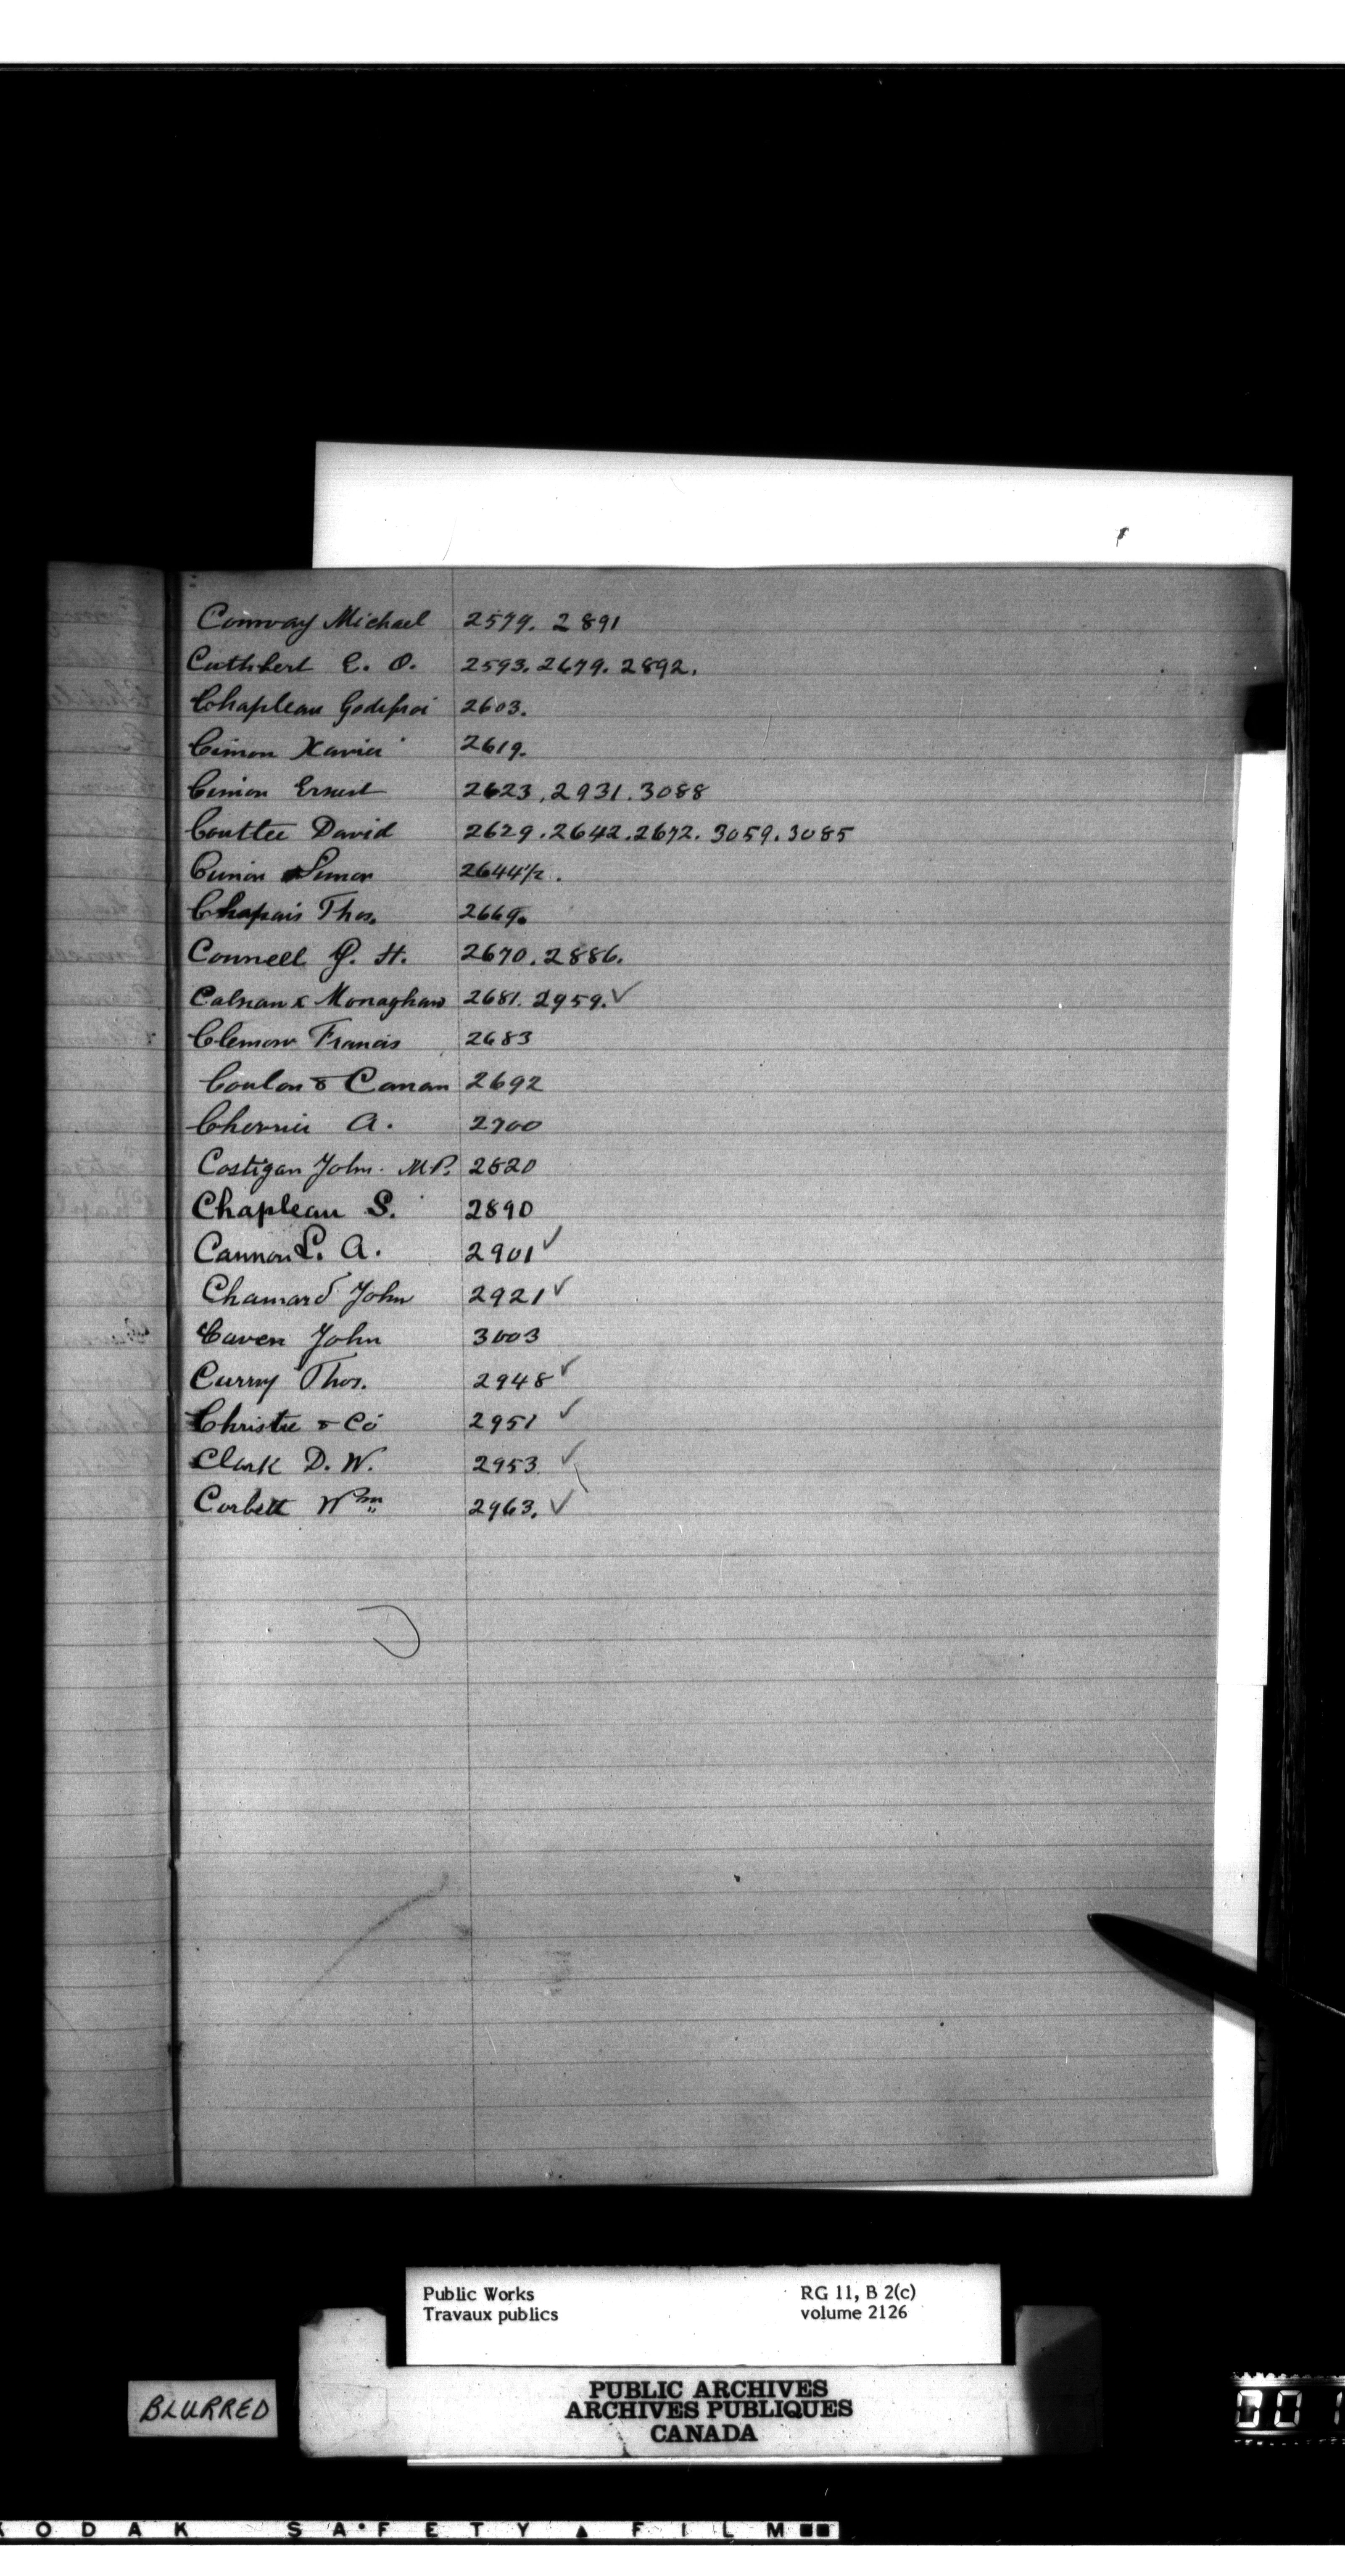 Conway Michael 2579. 2891
Cuthbert E. O. 2593. 2679. 2892.
Chapleau Godefroi 2603.
Cimon Xavier 2619.
Cimon Ernest 2623, 2931. 3088
Couttee David 2629. 2642. 2672. 3059. 3085
Cimon Simon 2644½.
Chapais Thos. 2669.
Connell G. H. 2670. 2886.
Calnan & Monaghan 2681. 2959. ✓
Clemow Francis 2683
Conlon & Canan 2692
Chernier A. 2700
Costigan John. M.P. 2820
Chapleau S. 2890
Cannon L. A. 2901 ✓
Chamard John 2921 ✓
Caven John 3003
Curry Thos. 2948 ✓
Christie & Co 2951 ✓
Clark D. W. 2953 ✓
Corbett Wm 2963. ✓
Public Works RG 11, B 2(c)
Travaux publics volume 2126
PUBLIC ARCHIVES
ARCHIVES PUBLIQUES
CANADA
BLURRED
001
KODAK SAFETY FILM